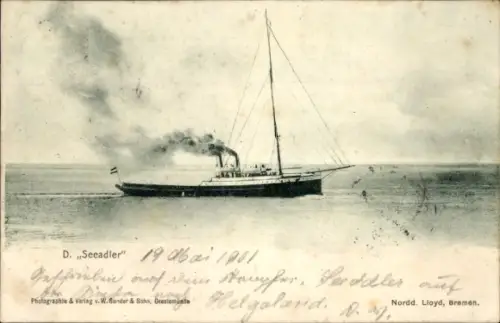 D. „Seeadler"
19 Mai 1901
Geschrieben auf dem Dampfer. Seeadler auf
der Fahrt nach Helgoland.
Photographie & Verlag v. W. Sander & Sohn, Geestemünde
Nordd. Lloyd, Bremen.